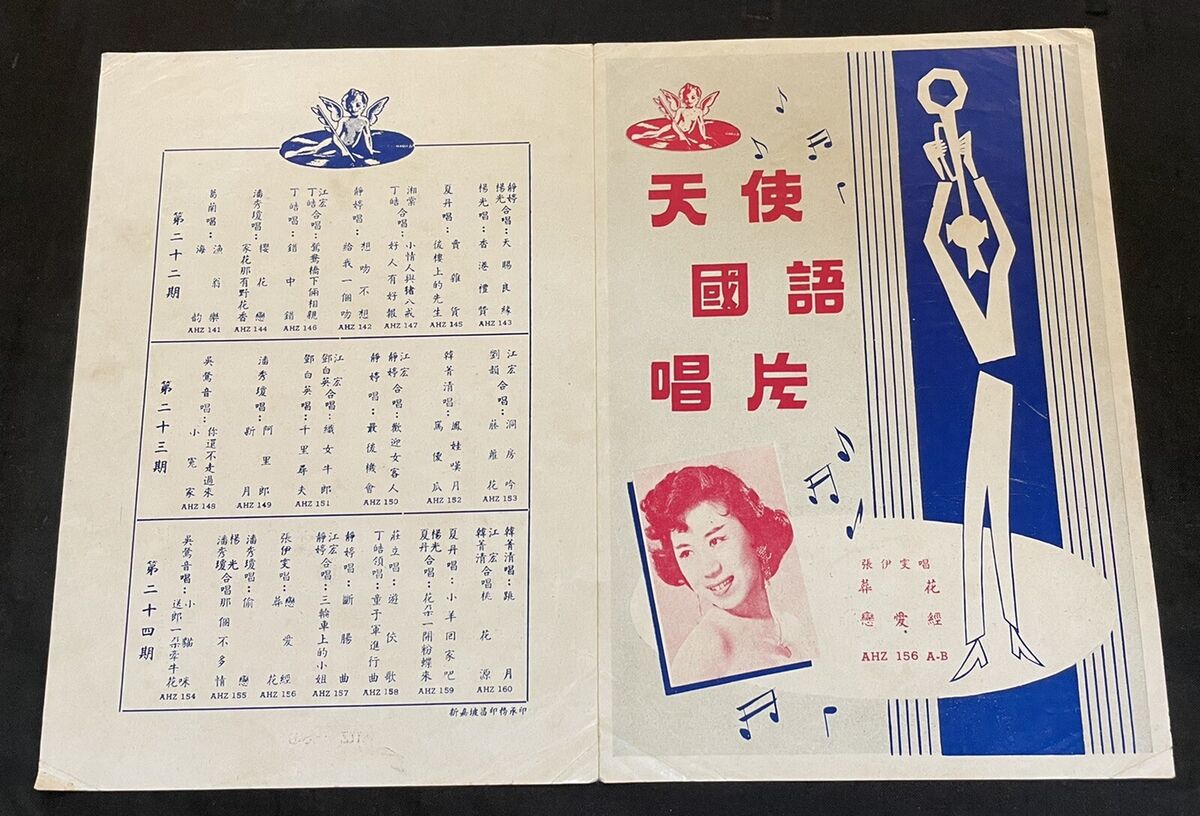 第二十二期
葛蘭唱：漁翁樂
海韵
AHZ 141
潘秀瓊唱：櫻花戀
家花那有野花香
AHZ 144
江宏丁皓合唱：鴛鴦橋下倆相親
丁皓唱：錯中錯
AHZ 146
靜婷唱：想吻不想
給我一個吻
AHZ 142
湘棠丁皓合唱：小情人與豬八戒
好人有好報
AHZ 147
夏丹唱：賣雜貨
後樓上的先生
AHZ 145
靜婷楊光合唱：天賜良緣
楊光唱：香港禮贊
AHZ 143
第二十三期
吳鶯音唱：你還不走過來
小冤家
AHZ 148
潘秀瓊唱：阿里郎
新月
AHZ 149
江宏鄧白英合唱：織女牛郎
鄧白英唱：千里尋夫
AHZ 151
江宏靜婷合唱：歡迎女客人
靜婷唱：最後機會
AHZ 150
韓菁清唱：鳳娃嘆月
罵傻瓜
AHZ 152
江宏劉韻合唱：洞房吟
藤蘿花
AHZ 153
第二十四期
吳鶯音唱：小貓咪
送郎一朵牽牛花
AHZ 154
潘秀瓊唱：偷戀
楊光潘秀瓊合唱：那個不多情
AHZ 155
張伊雯唱：戀愛經
葬花
AHZ 156
靜婷唱：斷腸曲
江宏靜婷合唱：三輪車上的小姐
AHZ 157
莊立唱：遊伙歌
丁皓領唱：童子軍進行曲
AHZ 158
夏丹唱：小羊回家吧
楊光夏丹合唱：花朵一開粉蝶來
AHZ 159
韓菁清唱：跳月
江宏韓菁清合唱：桃花源
AHZ 160
新嘉坡昌印務承印
天使
國語
唱片
張伊雯唱
葬花
戀愛經
AHZ 156 A-B